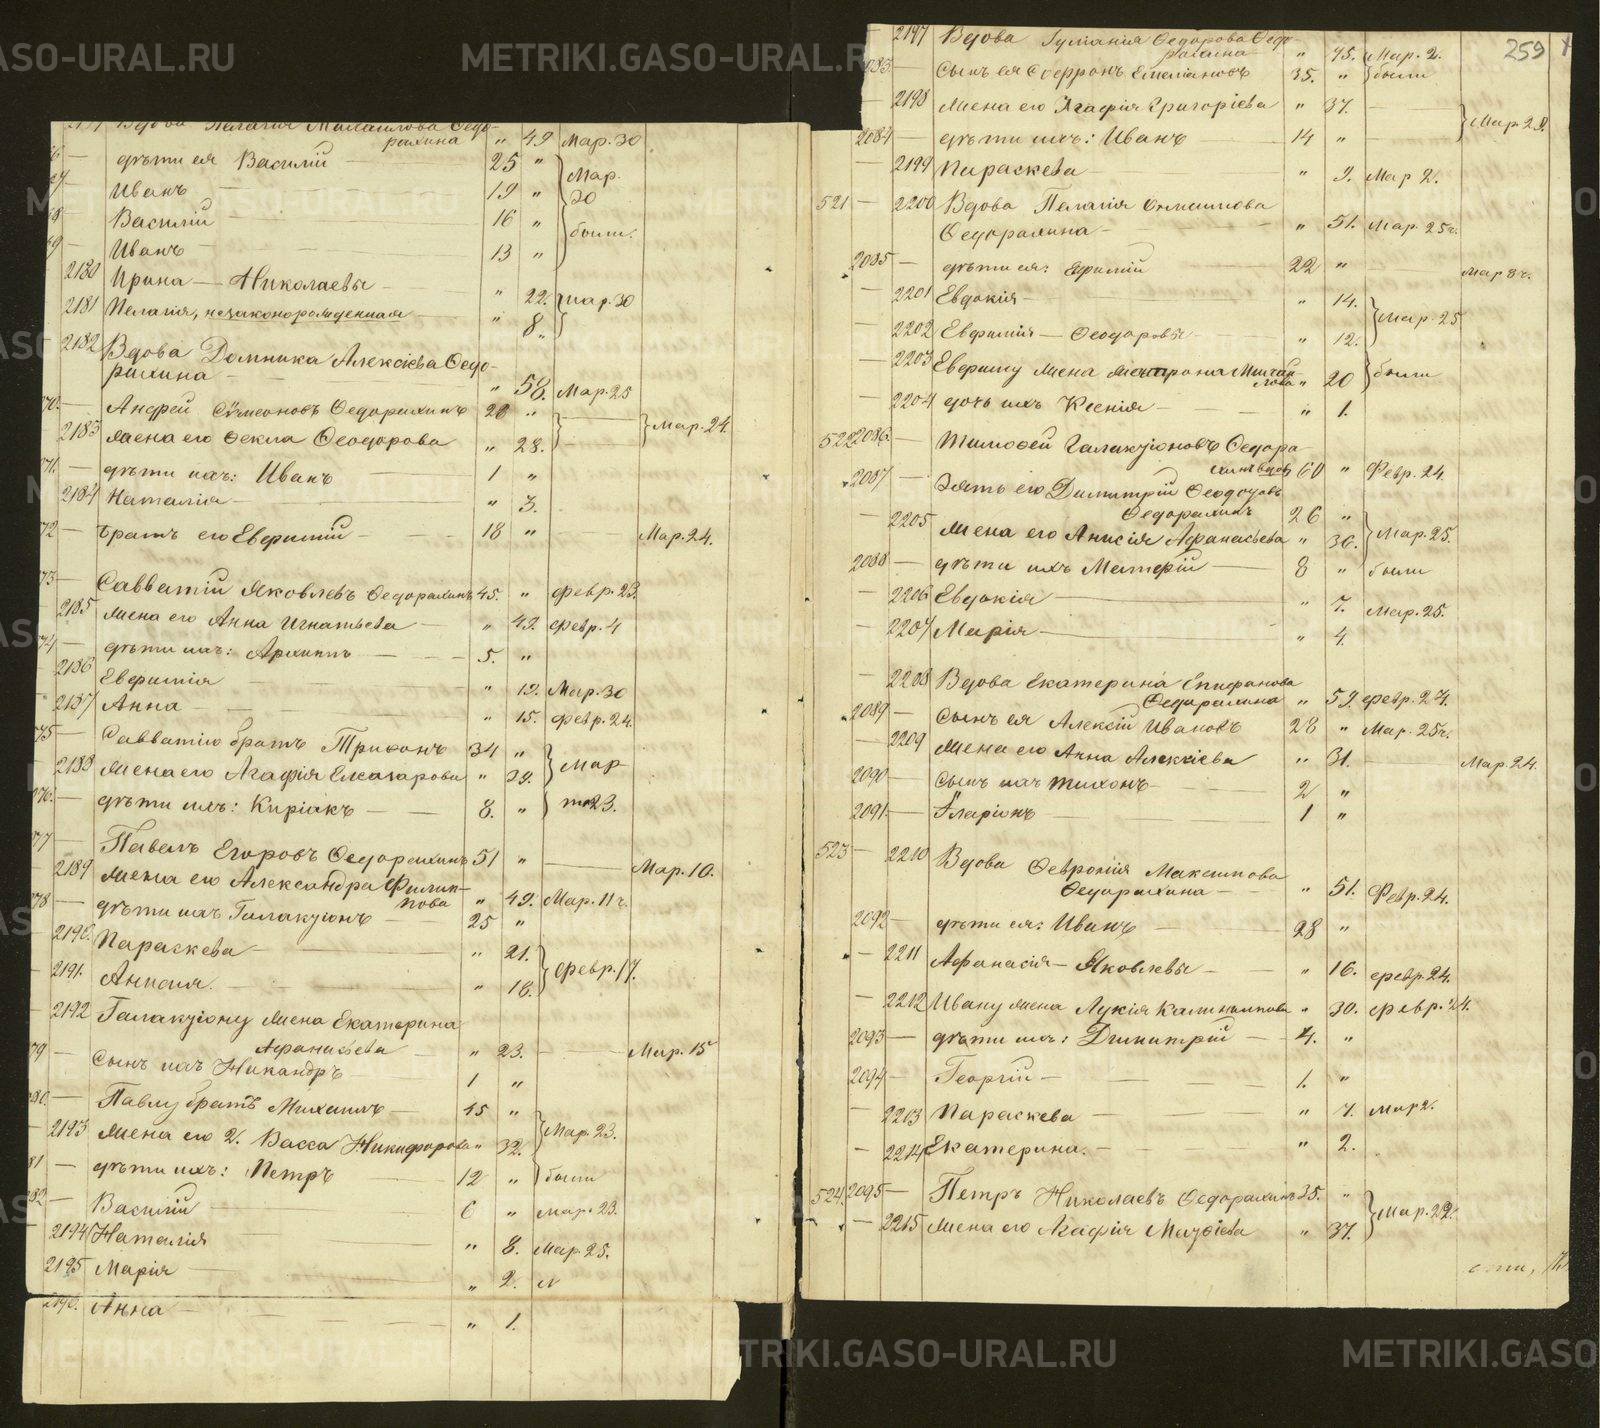 Вдова Пелагія Михаилова Ѳедо-
рахина " 49 Мар. 30
дѣти ея Василій 25 "
Иванъ 19 " Мар. 30
Василій 16 " были
Иванъ 13 "
2180 Ирина — Николаевы " 22. Мар. 30
2181 Пелагія, незаконорожденная " 8.
2182 Вдова Домника Алексіева Ѳедо-
рахина " 58. Мар. 25
70. Андрей Сѵмеоновъ Ѳедорахинъ 28 "
2183 жена его Ѳекла Ѳеодорова " 28. Мар. 24.
71. дѣти ихъ: Иванъ 1 "
2184 Наталія " 3.
72 братъ его Евфимій 18 " Мар. 24.
73 Савватій Яковлевъ Ѳедорахинъ 45. " февр. 23.
2185 жена его Анна Игнатьева " 42. февр. 4
74 дѣти ихъ: Архипъ 5. "
2186 Евфимія " 19. Мар. 30
2187 Анна " 15. февр. 24.
75 Савватію братъ Трифонъ 34 "
2188 жена его Агафія Елеазарова " 39. Мар
76. дѣти ихъ: Киріакъ 8. " 23.
77 Павелъ Егоровъ Ѳедорахинъ 51 " Мар. 10.
2189 жена его Александра Филип-
пова " 49. Мар. 11 ч.
78 дѣти ихъ Галактіонъ 25 "
2190. Параскева " 21.
2191. Анисія. " 18. Февр. 17.
2192 Галактіону жена Екатерина
Аѳанасьева " 23. Мар. 15
79 Сынъ ихъ Никандръ 1 "
80. Павлу братъ Михаилъ 45 "
2193 жена его 2. Васса Никифорова " 32. Мар. 23.
81 дѣти ихъ: Петръ 12 " были
82 Василій 6 " Мар. 23.
2194 Наталія " 8. Мар. 25.
2195 Марія " 2.
2196. Анна " 1.
259
2197 Вдова Іуліанія Ѳедорова Ѳедо-
рахина " 75. Мар. 2.
2083 Сынъ ея Софронъ Емеліановъ 35. " были
2198 жена его Агафія Григоріева " 37.
2084 дѣти ихъ: Иванъ 14 " Мар. 29.
2199 Параскева " 9. Мар 2.
521 2200 Вдова Пелагія
Ѳедорахина " 51. Мар. 25 ч.
2085 дѣти ея: 22 " Мар 8 ч.
2201 Евдокія " 14.
2202 Евфимія — Ѳеодоровы " 12. Мар. 25
2203 Евфиму жена Матрона Михаи-
лова " 20 были
2204 дочь ихъ Ксенія " 1.
522 2086. Тимоѳей Галактіоновъ Ѳедора-
хинъ вдов 60 " Февр. 24.
2087 Зять его Димитрій Ѳеодотовъ
Ѳедорахинъ 26 "
2205 жена его Анисія Аѳанасьева " 30. Мар. 25.
2088 дѣти ихъ 8 " были
2206 Евдокія " 7. Мар. 25.
2207 Марія " 4.
2208 Вдова Екатерина Епифанова
Ѳедорахина " 59. февр. 24.
2089 Сынъ ея Алексій Ивановъ 28 " Мар. 25 ч.
2209 жена его Анна Алексіева " 31. Мар. 24.
2090 Сынъ ихъ Тихонъ 2 "
2091. Иларіонъ 1 "
523 2210 Вдова Ѳевронія Максимова
Ѳедорахина " 51. Февр. 24.
2092 дѣти ея: Иванъ 28 "
2211 Аѳанасія — Яковлевы " 16. февр. 24.
2212 Ивану жена Лукія Калинникова " 30. февр. 24.
2093 дѣти ихъ: Димитрій 4. "
2094 Георгій 1. "
2203 Параскева " 7. Мар 2.
2214 Екатерина. " 2.
524. 2095 Петръ Николаевъ Ѳедорахинъ 35. "
2215 жена его Агафія " 37. Мар. 22.
METRIKI.GASO-URAL.RU